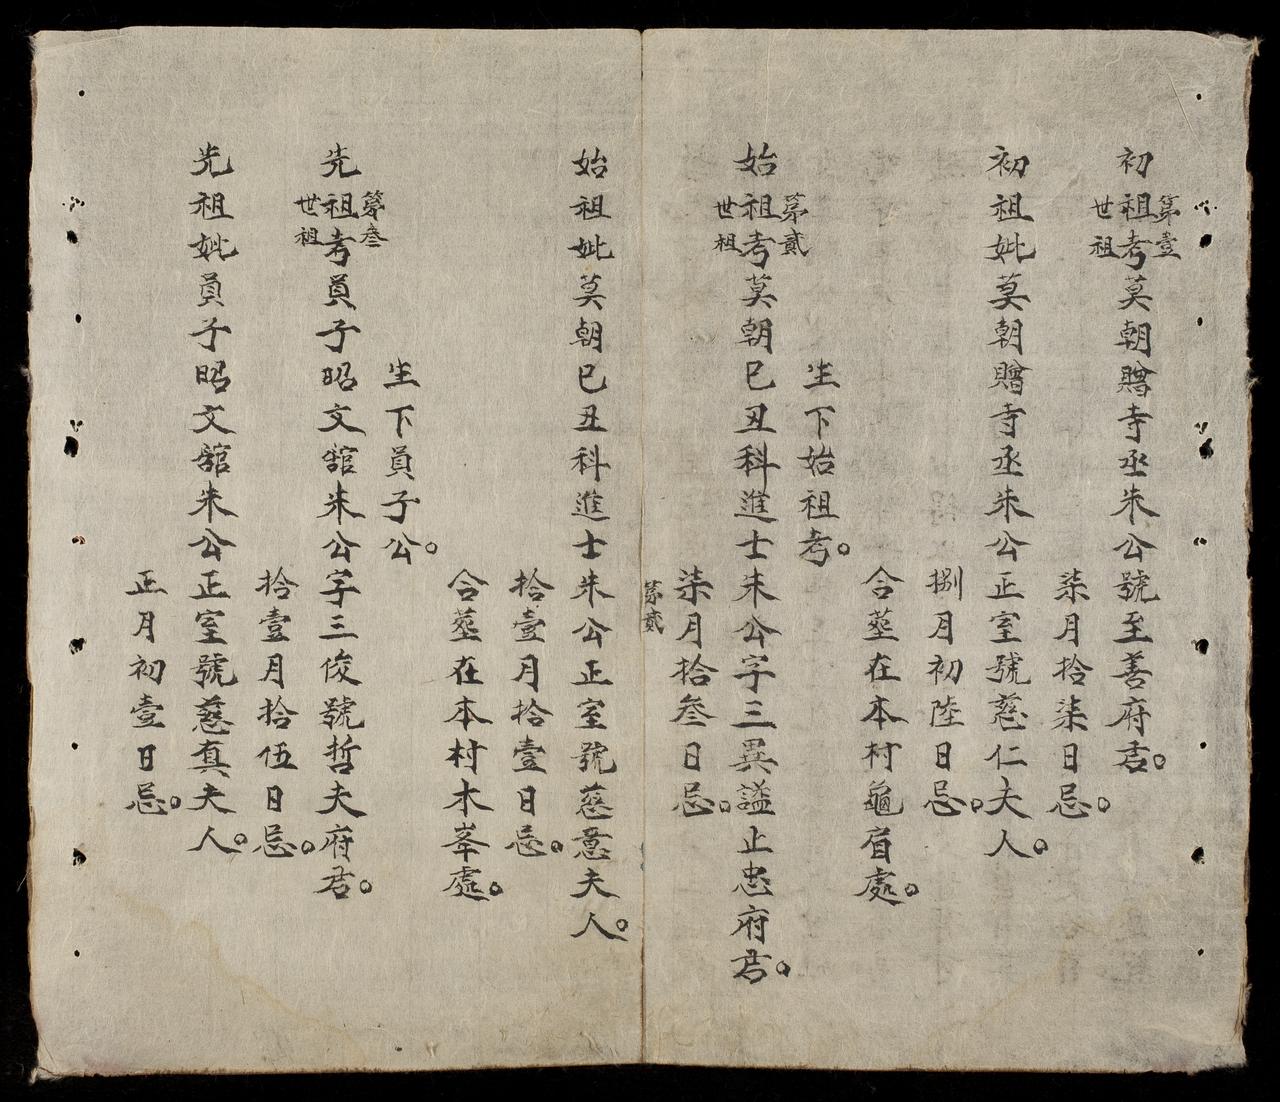 初祖考莫朝贈寺丞朱公號至善府君。
第壹
世祖
柒月拾柒日忌。
初祖妣莫朝贈寺丞朱公正室號慈仁夫人。
捌月初陸日忌。
合葬在本村龜眉處。
生下始祖考。
始祖考莫朝巳丑科進士朱公字三異謚止忠府君。
第貳
世祖
柒月拾叁日忌。
第貳
始祖妣莫朝巳丑科進士朱公正室號慈懿夫人。
拾壹月拾壹日忌。
合葬在本村木峯處。
生下員子公。
先祖考員子昭文舘朱公字三俊號哲夫府君。
第叁
世祖
拾壹月拾伍日忌。
先祖妣員子昭文舘朱公正室號慈真夫人。
正月初壹日忌。